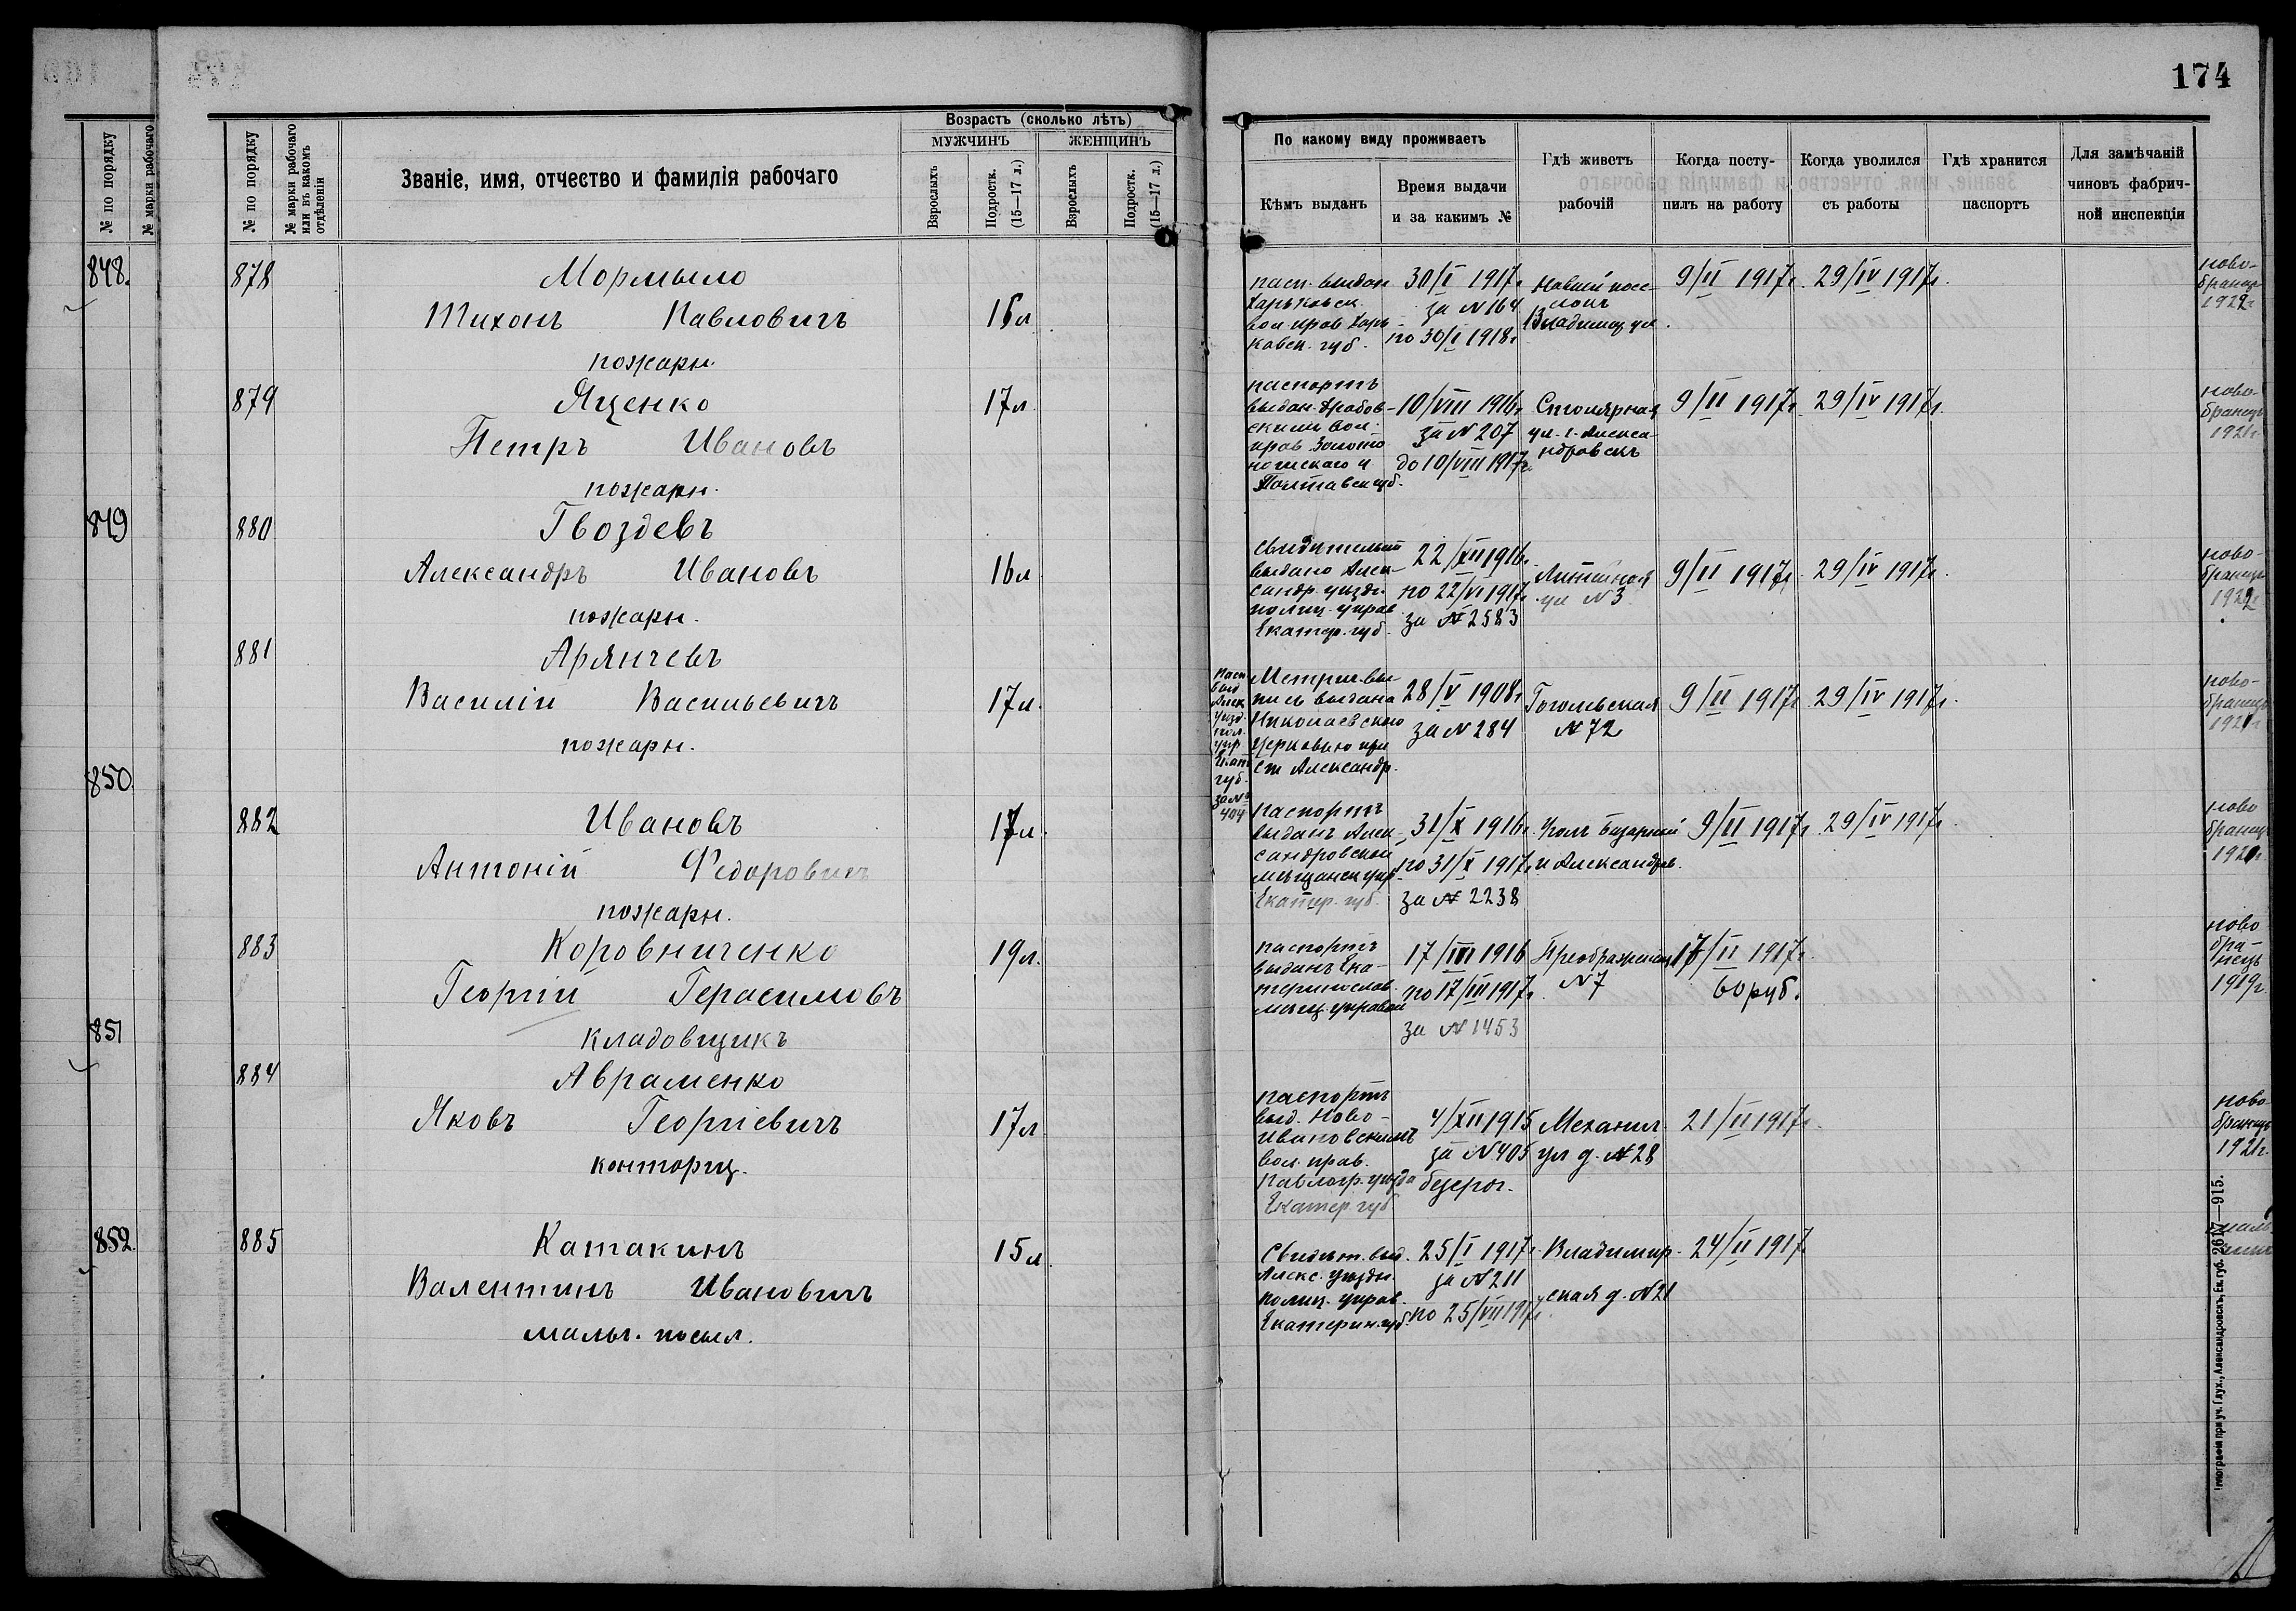 174
№ по порядку
№ марки рабочаго
№ по порядку
№ марки рабочаго
или въ какомъ
отдѣленіи
Званіе, имя, отчество и фамилія рабочаго
Возрастъ (сколько лѣтъ)
МУЖЧИНЪ
ЖЕНЩИНЪ
Взрослыхъ
Подростк.
(15—17 л.)
Взрослыхъ
Подростк.
(15—17 л.)
По какому виду проживаетъ
Кѣмъ выданъ
Время выдачи
и за какимъ №
Гдѣ живетъ
рабочій
Когда посту-
пилъ на работу
Когда уволился
съ работы
Гдѣ хранится
паспортъ
Для замѣчаній
чиновъ фабрич-
ной инспекціи
848.
849
850.
851
852.
878
Мормыло
Тихонъ Павловичъ
пожарн.
16л
пасп. выдан
Харьковск.
вол. прав. Харь-
ковск. губ.
30/I 1917г.
за №164
по 30/I 1918г
Новый посе-
локъ
Владимір ул.
9/II 1917г.
29/IV 1917г.
ново-
бранец
1922г
879
Яценко
Петръ Ивановъ
пожарн.
17л.
паспортъ
выдан. Драбов-
скимъ вол.
прав. Золото
ношскаго у.
Полтавск губ.
10/VIII 1916г.
за №207
до 10/VIII 1917г.
Столярная
ул. г. Алекса-
ндровскъ
9/II 1917г.
29/IV 1917г.
ново-
бранецъ
1921г
880
Гвоздевъ
Александръ Ивановъ
пожарн.
16л
выдано Алек-
сандр. уѣздн.
полиц. управ.
Екатер. губ.
22/XII 1916г.
по 22/VI 1917г.
за №2583
Литейная
ул №3
9/II 1917г.
29/IV 1917г.
ново-
бранецъ
1922г
881
Арянчевъ
Василій Васильевичъ
пожарн.
17л.
Пасп
выд
Алек
уѣзд.
пол.
упр.
Екат
губ.
за №
404
Метрич. вы-
пись выдана
Николаевскою
Церковью при
ст Александр.
28/V 1908г
за №284
Гогольевская
№72
9/II 1917г.
29/IV 1917г.
ново-
бранецъ
1921г
882
Ивановъ
Антоній Федоровичъ
пожарн.
17л.
паспортъ
выданъ Алек-
сандровской
мѣщанск упр.
Екатер. губ.
31/X 1916г.
по 31/X 1917г.
за №2238
Уголъ Базарной
и Александров.
9/II 1917г
29/IV 1917г.
ново
бранец
883
Коровниченко
Георгій Герасимовъ
кладовщикъ
19л.
паспортъ
выданъ Ека-
теринослав.
мѣщ. управой
17/III 1916
по 17/III 1917г.
за №1453
№7
17/II 1917г.
60 руб.
ново
бра-
нецъ
1919г.
884
Авраменко
Яковъ Георгіевичъ
конторщ.
17л
паспортъ
выд. Ново-
Ивановскимъ
вол. прав.
Павлогр. уѣзда
Екатер. губ
4/XII 1915
за №405
безсроч.
Механич.
ул д. №28
21/II 1917г.
ново-
бранецъ
1921г.
885
Катакинъ
Валентинъ Ивановичъ
мальч. посыл.
15л.
Свидѣт. выд.
Алекс. уѣздн.
полиц. управ.
Екатерин. губ.
25/I 1917г.
за №211
по 25/VII 1917г.
Владимір-
ская д. №21
24/II 1917
Типографія при уч. Глух., Александровскъ, Ек. губ. 2617—915.